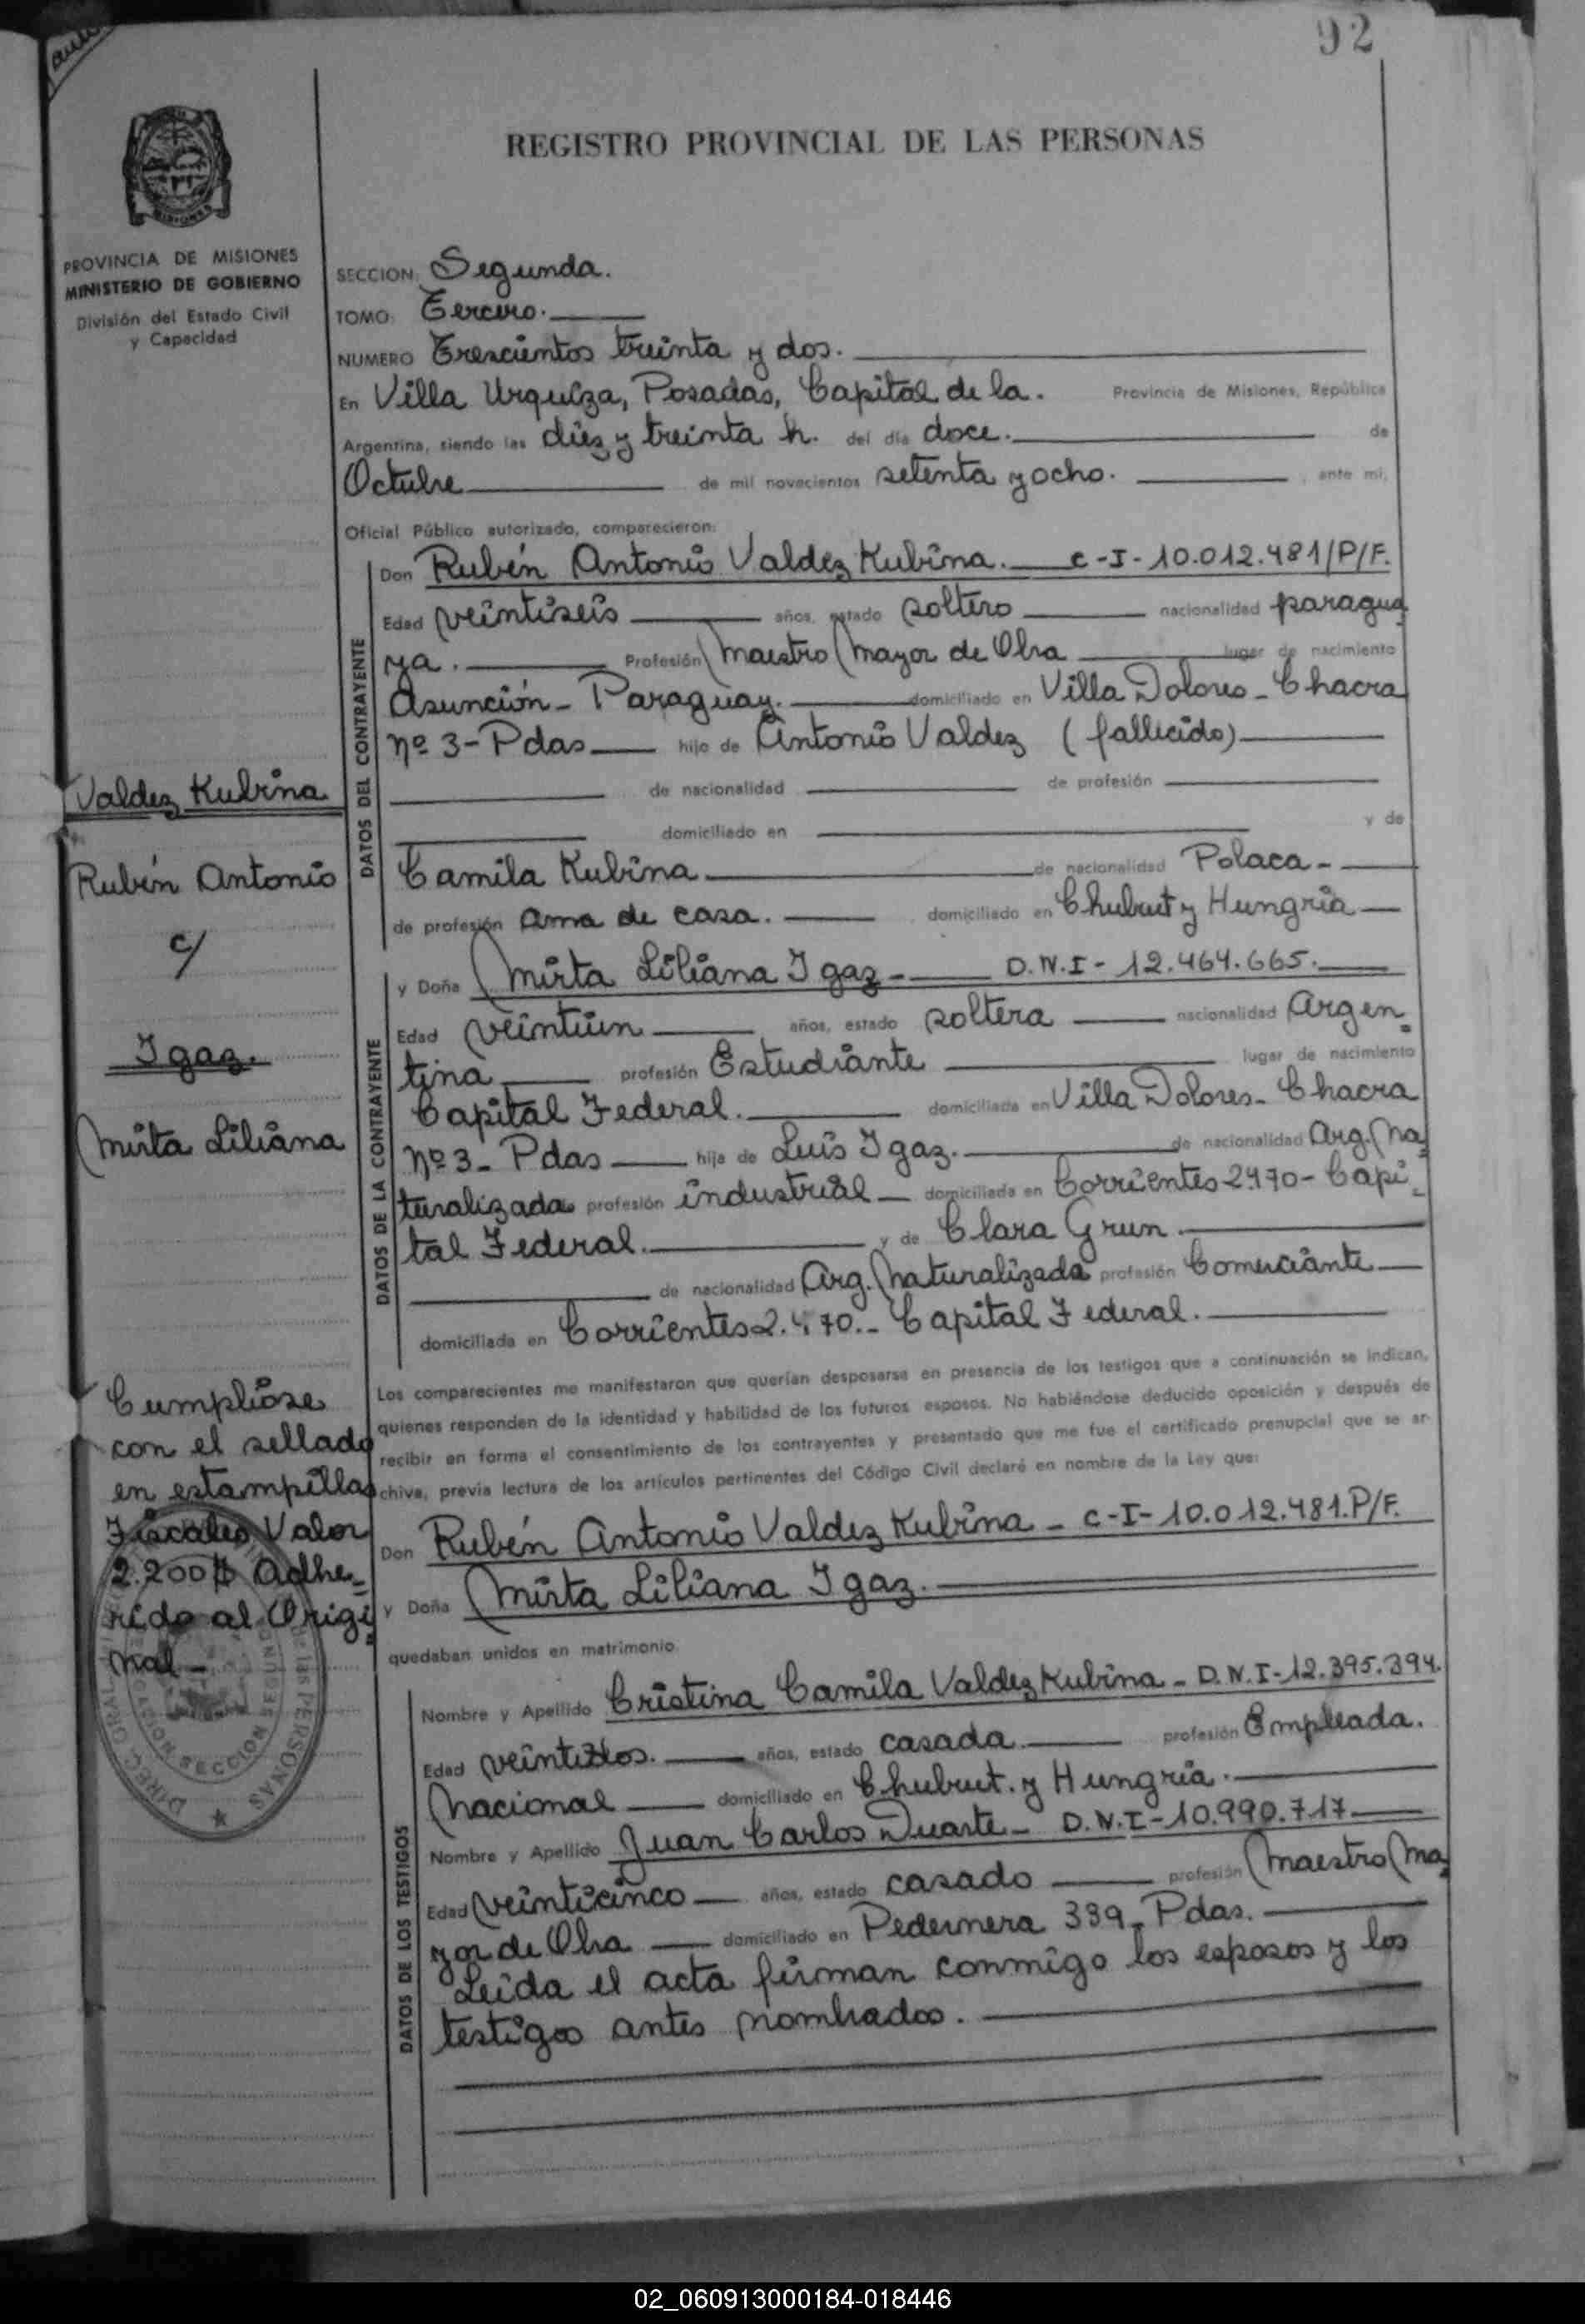 92
REGISTRO PROVINCIAL DE LAS PERSONAS
MISIONES
PROVINCIA DE MISIONES
MINISTERIO DE GOBIERNO
División del Estado Civil
y Capacidad
SECCION: Segunda.
TOMO: Tercero.
NUMERO Trescientos treinta y dos.
En Villa Urquiza, Posadas, Capital de la. Provincia de Misiones, República
Argentina, siendo las diez y treinta h. del día doce. de
Octubre de mil novecientos setenta y ocho. , ante mi,
Oficial Público autorizado, comparecieron:
DATOS DEL CONTRAYENTE
Don Rubén Antonio Valdez Kubina. C-I-10.012.481/P/F.
Edad veintiseis años, estado soltero nacionalidad paragua
ya. Profesión Maestro Mayor de Obra lugar de nacimiento
Asunción - Paraguay. domiciliado en Villa Dolores - Chacra
Nº 3 - Pdas hijo de Antonio Valdez (fallecido)
de nacionalidad de profesión
domiciliado en y de
Camila Kubina de nacionalidad Polaca -
de profesión ama de casa. domiciliado en Chubut y Hungria
Valdez Kubina
Rubén Antonio
c/
Igaz.
Mirta Liliana
DATOS DE LA CONTRAYENTE
y Doña Mirta Liliana Igaz - D.N.I - 12.464.665.
Edad veintiun años, estado soltera nacionalidad Argen=
tina profesión Estudiante lugar de nacimiento
Capital Federal. domiciliada en Villa Dolores - Chacra
Nº 3 - Pdas hija de Luis Igaz. de nacionalidad Arg. Na
turalizada profesión industrial - domiciliada en Corrientes 2470 - Capi=
tal Federal. y de Clara Grun.
de nacionalidad Arg. Naturalizada profesión Comerciante
domiciliada en Corrientes 2.470.- Capital Federal.
Los comparecientes me manifestaron que querían desposarse en presencia de los testigos que a continuación se indican,
quienes responden de la identidad y habilidad de los futuros esposos. No habiéndose deducido oposición y después de
recibir en forma el consentimiento de los contrayentes y presentado que me fue el certificado prenupcial que se ar-
chiva, previa lectura de los artículos pertinentes del Código Civil declaré en nombre de la Ley que:
Don Rubén Antonio Valdez Kubina - C-I-10.012.481.P/F.
y Doña Mirta Liliana Igaz.
quedaban unidos en matrimonio.
Cumplióse
con el sellado
en estampillas
Fiscales Valor
2.200$ Adhe=
rido al Origi=
nal -
DATOS DE LOS TESTIGOS
Nombre y Apellido Cristina Camila Valdez Kubina - D.N.I - 12.395.394.
Edad veintidos. años, estado casada. profesión Empleada.
Nacional domiciliado en Chubut. y Hungria.
Nombre y Apellido Juan Carlos Duarte - D.N.I - 10.990.717
Edad veinticinco años, estado casado profesión Maestro Ma
yor de Obra domiciliado en Pedernera 339 - Pdas.
Leida el acta firman conmigo los esposos y los
testigos antes nombrados.
02_060913000184-018446